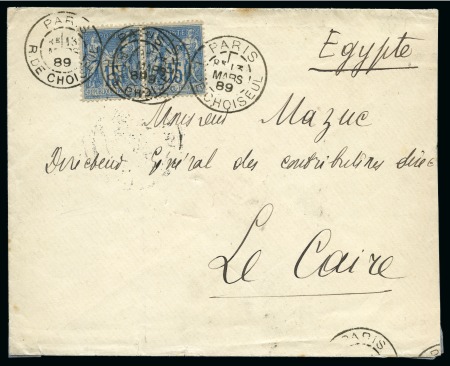 PARIS
13
89
R. DE CHOISEUL
PARIS
13
MARS
89
CHOISEUL
Egypte
Monsieur Mazuc
Directeur Général des contributions direc
Le Caire
PARIS